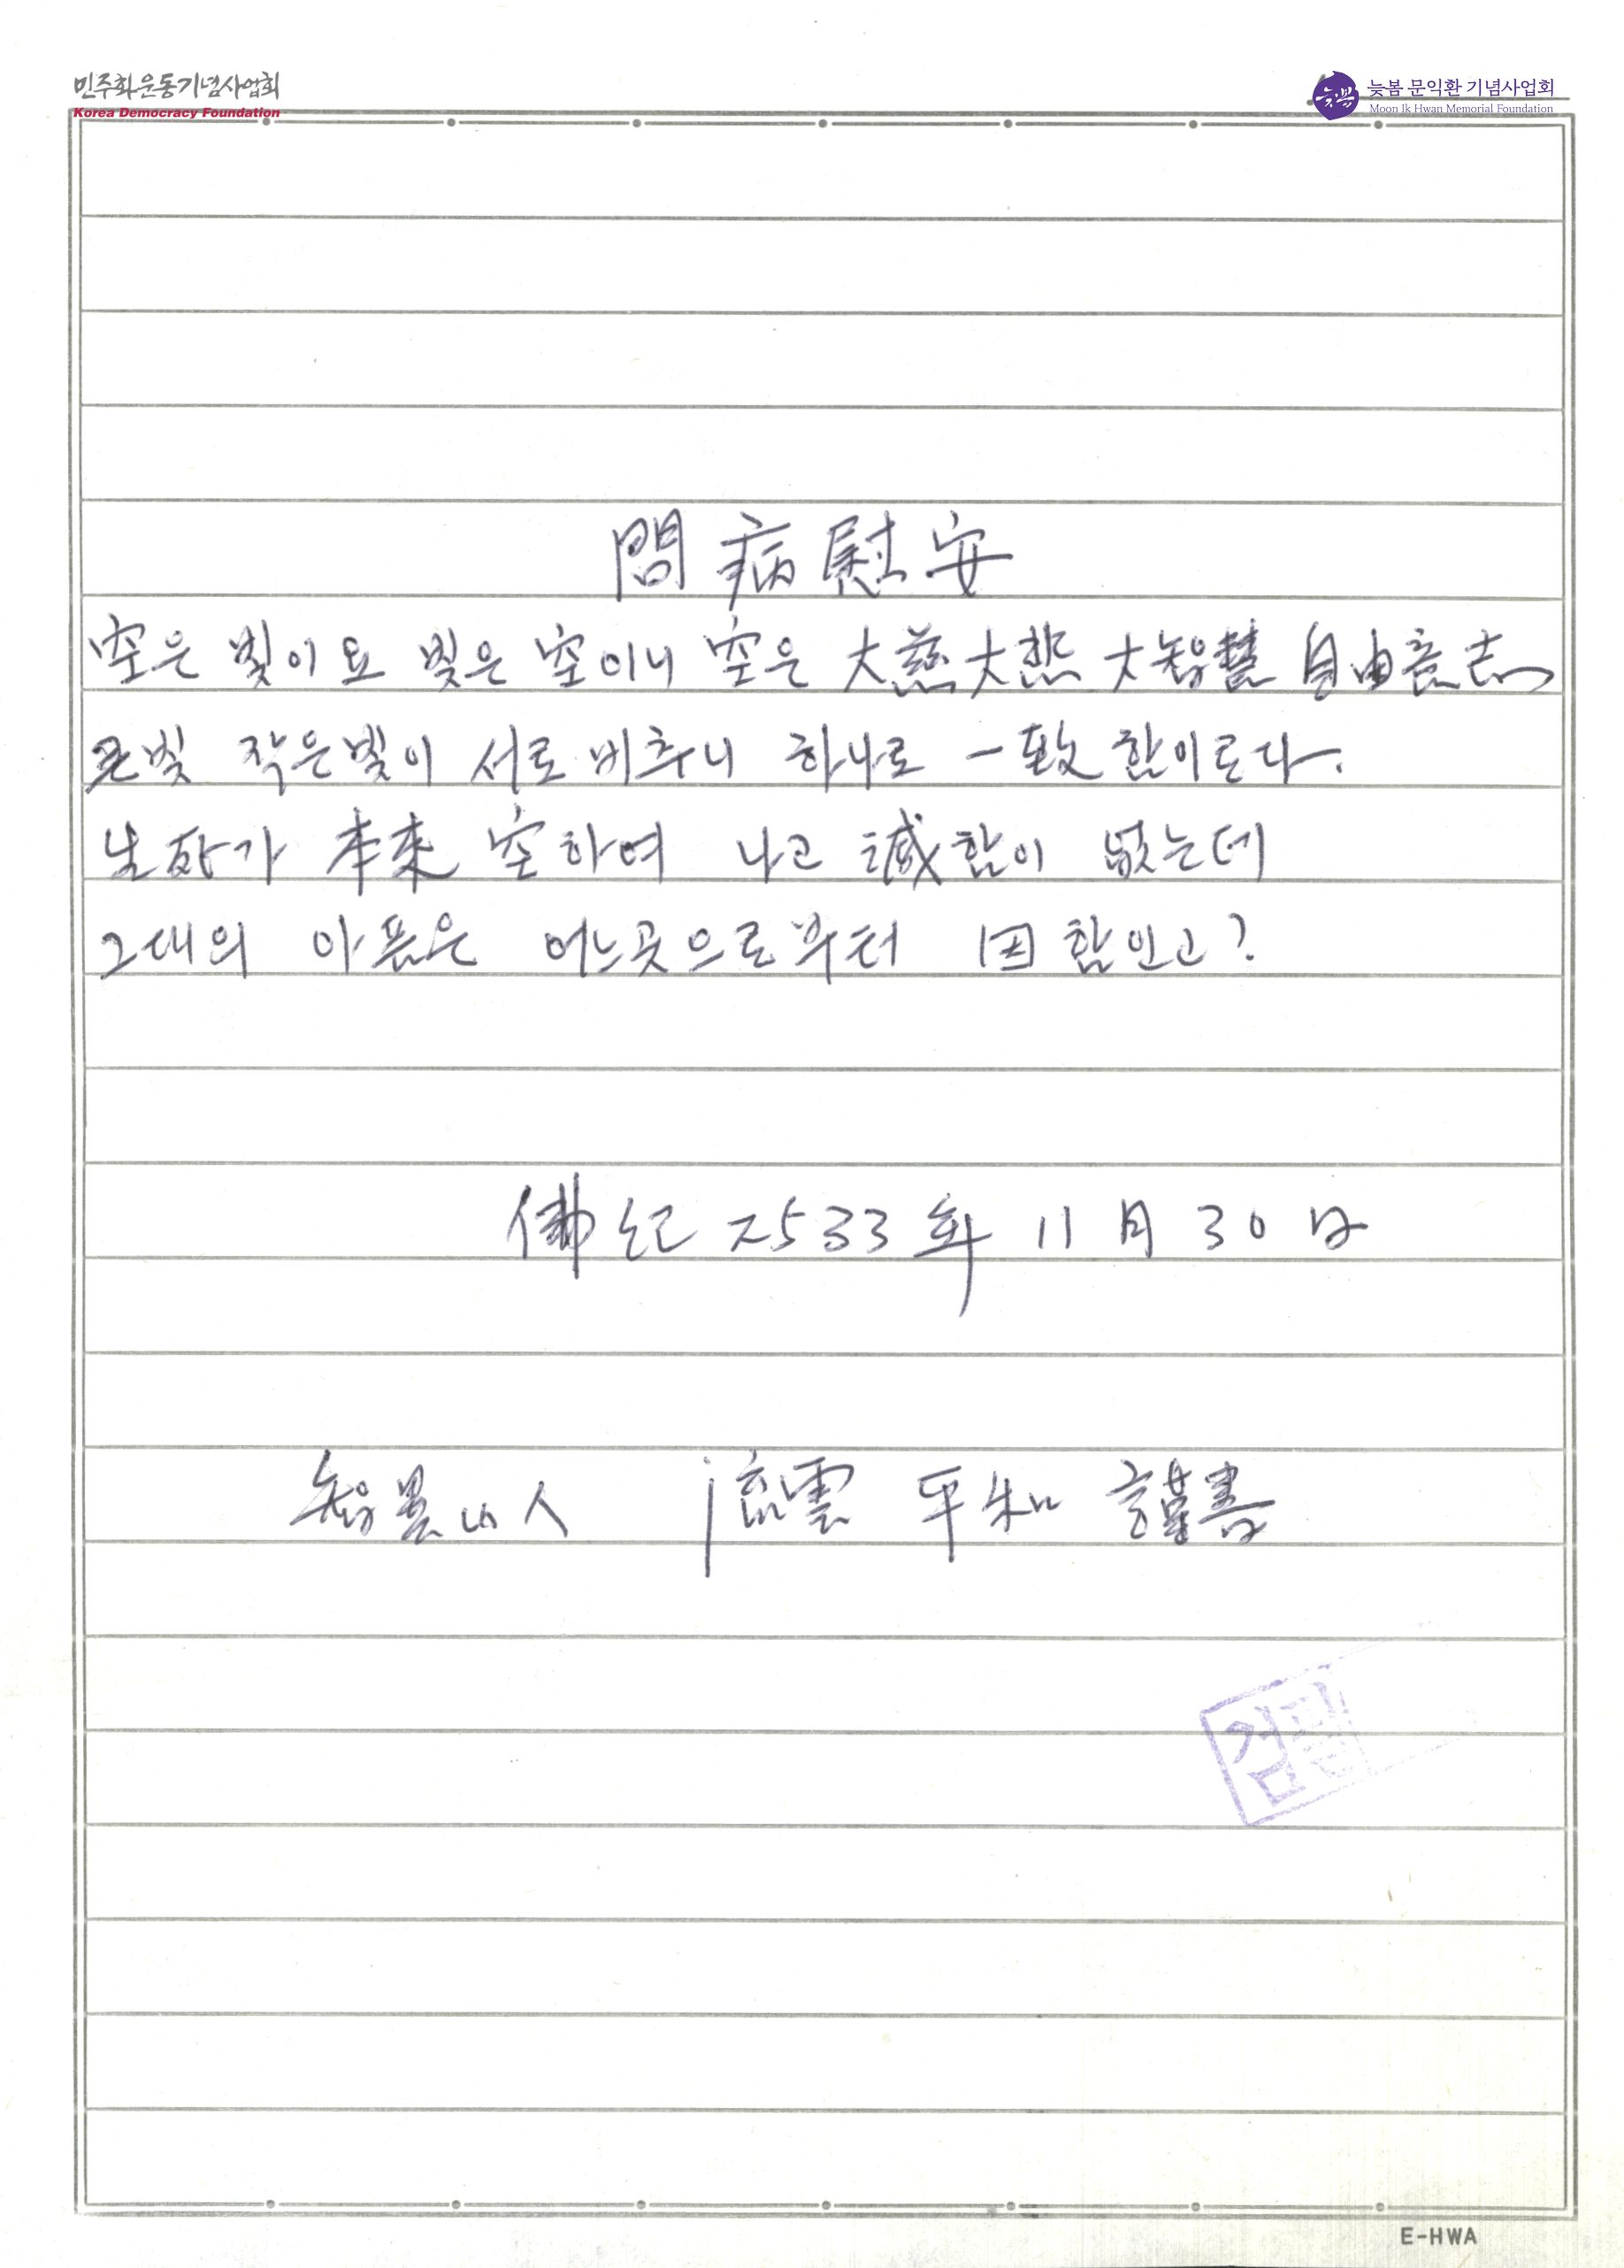 민주화운동기념사업회
Korea Democracy Foundation
늦봄
늦봄 문익환 기념사업회
Moon Ik Hwan Memorial Foundation
問病慰安
空은 빛이요 빛은 空이니 空은 大慈大悲 大智慧 自由意志
큰빛 작은빛이 서로 비추니 하나로 一致함이로다.
生死가 本來 空하여 나고 滅함이 없는데
그대의 아픔은 어느곳으로부터 因함인고?
佛紀 2533年 11月 30日
智異山人 流雲 平和 謹書
검
E-HWA